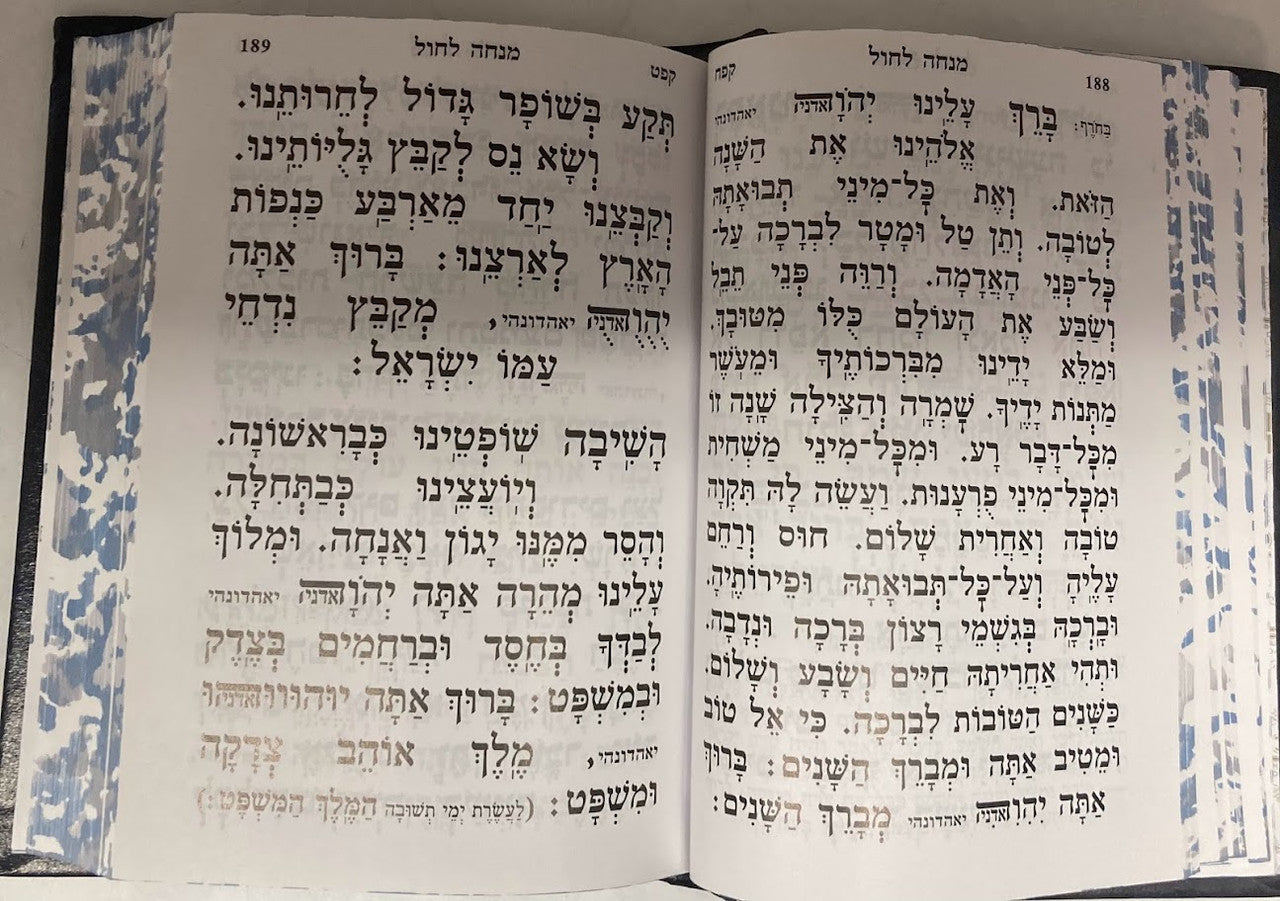 188 מנחה לחול קפח
בַּחֹרֶף: בָּרֵךְ עָלֵֽינוּ יְהֹוָה אדניה יאהדונהי
אֱלֹהֵֽינוּ אֶת הַשָּׁנָה
הַזֹּאת. וְאֶת כׇּל־מִינֵי תְבוּאָתָהּ
לְטוֹבָה. וְתֵן טַל וּמָטָר לִבְרָכָה עַל־
כׇּל־פְּנֵי הָאֲדָמָה. וְרַוֵּה פְּנֵי תֵבֵל
וְשַׂבַּע אֶת הָעוֹלָם כֻּלּוֹ מִטּוּבָךְ.
וּמַלֵּא יָדֵֽינוּ מִבִּרְכוֹתֶֽיךָ וּמֵעֹֽשֶׁר
מַתְּנוֹת יָדֶֽיךָ. שׇׁמְרָה וְהַצִּילָה שָׁנָה זוֹ
מִכׇּל־דָּבָר רָע. וּמִכׇּל־מִינֵי מַשְׁחִית
וּמִכׇּל־מִינֵי פֻרְעָנוּת. וַעֲשֵׂה לָהּ תִּקְוָה
טוֹבָה וְאַחֲרִית שָׁלוֹם. חוּס וְרַחֵם
עָלֶֽיהָ וְעַל־כׇּל־תְּבוּאָתָהּ וּפֵירוֹתֶֽיהָ.
וּבָרְכָהּ בְּגִשְׁמֵי רָצוֹן בְּרָכָה וּנְדָבָה.
וּתְהִי אַחֲרִיתָהּ חַיִּים וְשָׂבָע וְשָׁלוֹם.
כַּשָּׁנִים הַטּוֹבוֹת לִבְרָכָה. כִּי אֵל טוֹב
וּמֵטִיב אַתָּה וּמְבָרֵךְ הַשָּׁנִים: בָּרוּךְ
אַתָּה יִהִוִה אדניה יאהדונהי מְבָרֵךְ הַשָּׁנִים:
קפט מנחה לחול 189
תְּקַע בְּשׁוֹפָר גָּדוֹל לְחֵרוּתֵֽנוּ.
וְשָׂא נֵס לְקַבֵּץ גָּלֻיּוֹתֵֽינוּ.
וְקַבְּצֵֽנוּ יַֽחַד מֵאַרְבַּע כַּנְפוֹת
הָאָֽרֶץ לְאַרְצֵֽנוּ: בָּרוּךְ אַתָּה
יֻהֻוֻהֻ אדניה יאהדונהי, מְקַבֵּץ נִדְחֵי
עַמּוֹ יִשְׂרָאֵל:
הָשִֽׁיבָה שֽׁוֹפְטֵֽינוּ כְּבָרִאשׁוֹנָה.
וְיֽוֹעֲצֵֽינוּ כְּבַתְּחִלָּה.
וְהָסֵר מִמֶּֽנּוּ יָגוֹן וַאֲנָחָה. וּמְלוֹךְ
עָלֵֽינוּ מְהֵרָה אַתָּה יְהֹוָה אדניה יאהדונהי
לְבַדְּךָ בְּחֶֽסֶד וּבְרַחֲמִים בְּצֶֽדֶק
וּבְמִשְׁפָּט: בָּרוּךְ אַתָּה יוּהוּווּהוּ אדניה
יאהדונהי, מֶֽלֶךְ אוֹהֵב צְדָקָה
וּמִשְׁפָּט: (לַעֲשֶׂרֶת יְמֵי תְשׁוּבָה הַמֶּֽלֶךְ הַמִּשְׁפָּט:)